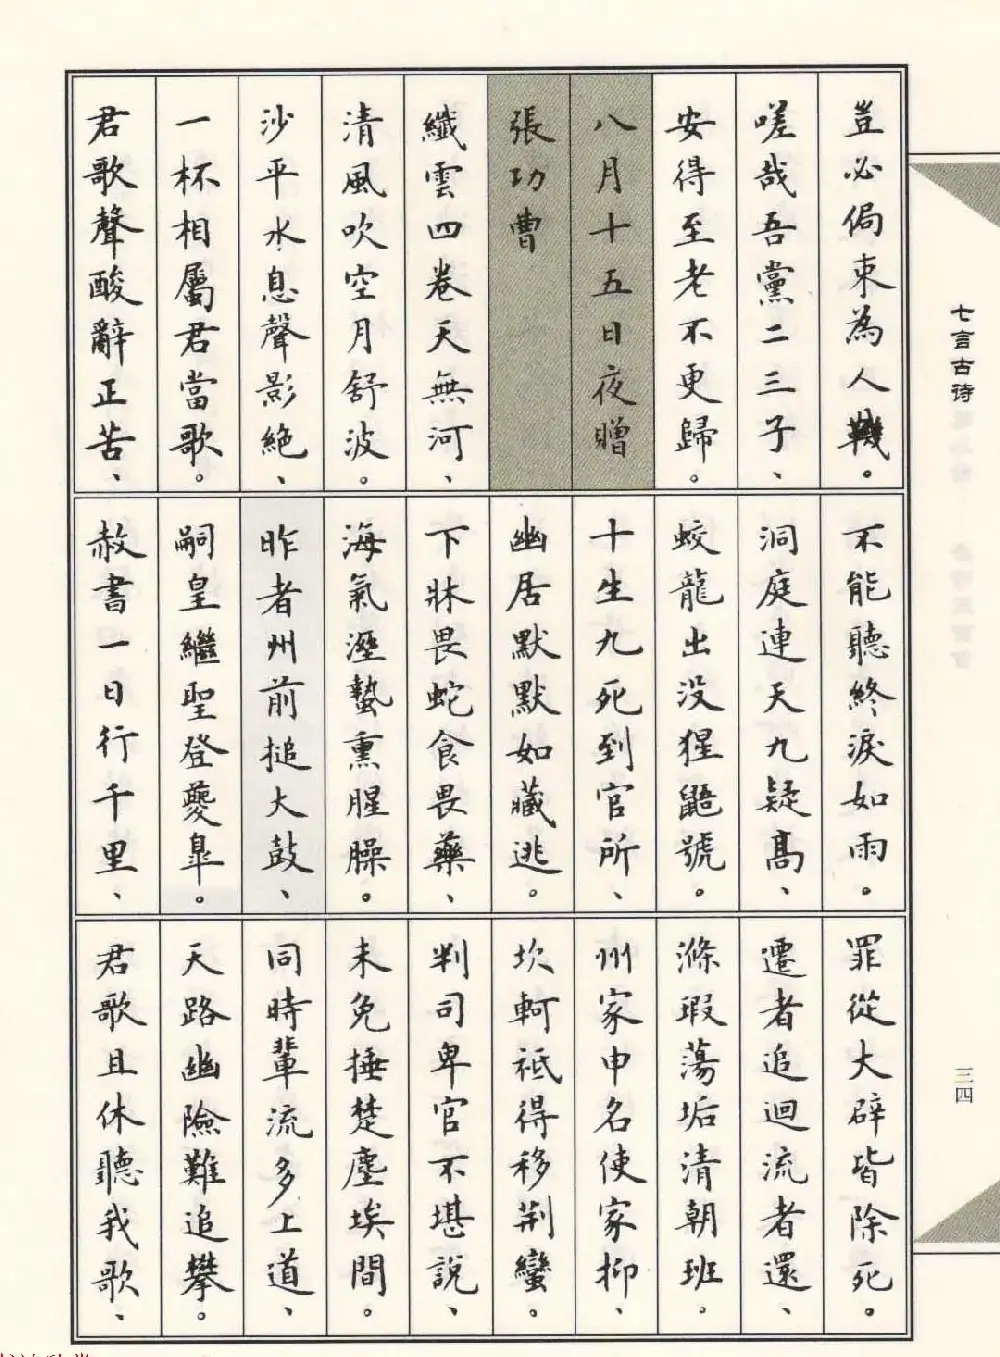 豈必侷束為人鞿。
嗟哉吾黨二三子、
安得至老不更歸。
八月十五日夜贈
張功曹
纖雲四卷天無河、
清風吹空月舒波。
沙平水息聲影絶、
一杯相屬君當歌。
君歌聲酸辭正苦、
不能聽終淚如雨。
洞庭連天九疑高、
蛟龍出没猩鼯號。
十生九死到官所、
幽居默默如藏逃。
下牀畏蛇食畏藥、
海氣溼蟄熏腥臊。
昨者州前搥大鼓、
嗣皇繼聖登夔皋。
赦書一日行千里、
罪從大辟皆除死。
遷者追迴流者還、
滌瑕蕩垢清朝班.
州家申名使家抑、
坎軻祗得移荆蠻。
判司卑官不堪説、
未免捶楚塵埃間。
同時輩流多上道、
天路幽險難追攀。
君歌且休聽我歌、
七言古诗
三四